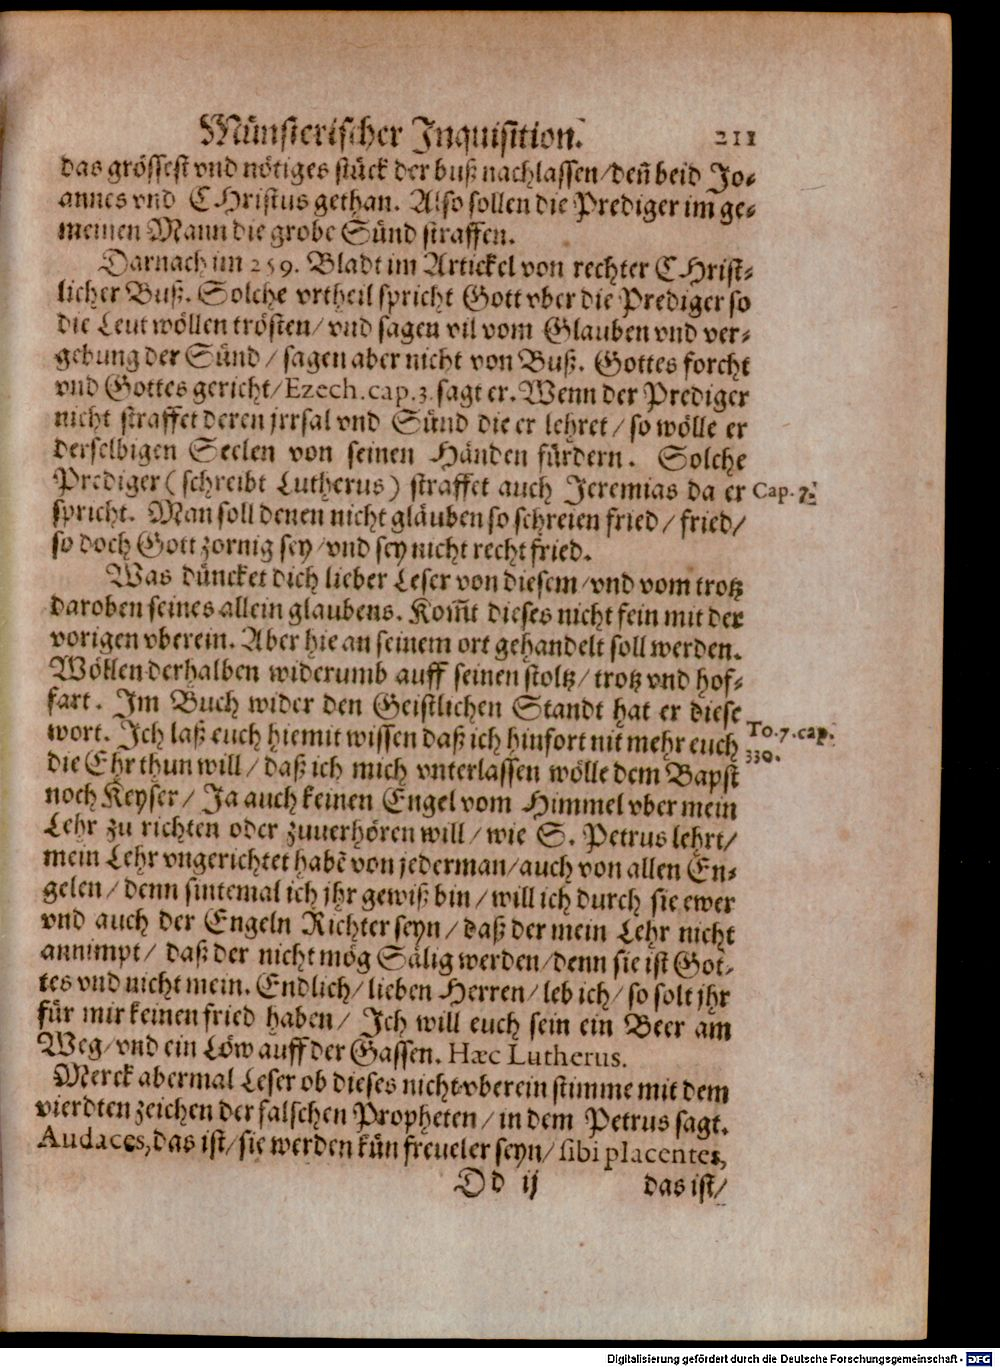 Münsterischer Inquisition. 211
das grössest vnd nötiges stück der buß nachlassen/deñ beid Jo-
annes vnd CHristus gethan. Also sollen die Prediger im ge-
meinen Mann die grobe Sünd straffen.
Darnach im 259. Bladt im Artickel von rechter CHrist-
licher Buß. Solche vrtheil spricht Gott vber die Prediger so
die Leut wöllen trösten/ vnd sagen vil vom Glauben vnd ver-
gebung der Sünd/ sagen aber nicht von Buß. Gottes forcht
vnd Gottes gericht/ Ezech. cap. 3. sagt er. Wenn der Prediger
nicht straffet deren jrrsal vnd Sünd die er lehret/ so wölle er
derselbigen Seelen von seinen Händen fürdern. Solche
Prediger (schreibt Lutherus) straffet auch Jeremias da er
Cap. 7.
spricht. Man soll denen nicht gläuben so schreien fried/ fried/
so doch Gott zornig sey/vnd sey nicht recht fried.
Was düncket dich lieber Leser von diesem/vnd vom trotz
daroben seines allein glaubens. Kom̃t dieses nicht fein mit der
vorigen vberein. Aber hie an seinem ort gehandelt soll werden.
Wöllen derhalben widerumb auff seinen stoltz/ trotz vnd hof-
fart. Im Buch wider den Geistlichen Standt hat er diese
wort. Ich laß euch hiemit wissen daß ich hinfort nit mehr euch
To. 7. cap.
330.
die Ehr thun will/ daß ich mich vnterlassen wölle dem Bapst
noch Keyser/ Ja auch keinen Engel vom Himmel vber mein
Lehr zu richten oder zuuerhören will/ wie S. Petrus lehrt/
mein Lehr vngerichtet habẽ von jederman/auch von allen En-
gelen/ denn sintemal ich jhr gewiß bin/ will ich durch sie ewer
vnd auch der Engeln Richter seyn/ daß der mein Lehr nicht
annimpt/ daß der nicht mög Sälig werden/denn sie ist Got-
tes vnd nicht mein. Endlich/ lieben Herren/ leb ich/ so solt jhr
für mir keinen fried haben/ Ich will euch sein ein Beer am
Weg/ vnd ein Löw auff der Gassen. Hæc Lutherus.
Merck abermal Leser ob dieses nicht vberein stimme mit dem
vierdten zeichen der falschen Propheten/ in dem Petrus sagt.
Audaces, das ist/ sie werden kün freueler seyn/ sibi placentes,
Dd ij das ist/
Digitalisierung gefördert durch die Deutsche Forschungsgemeinschaft - DFG